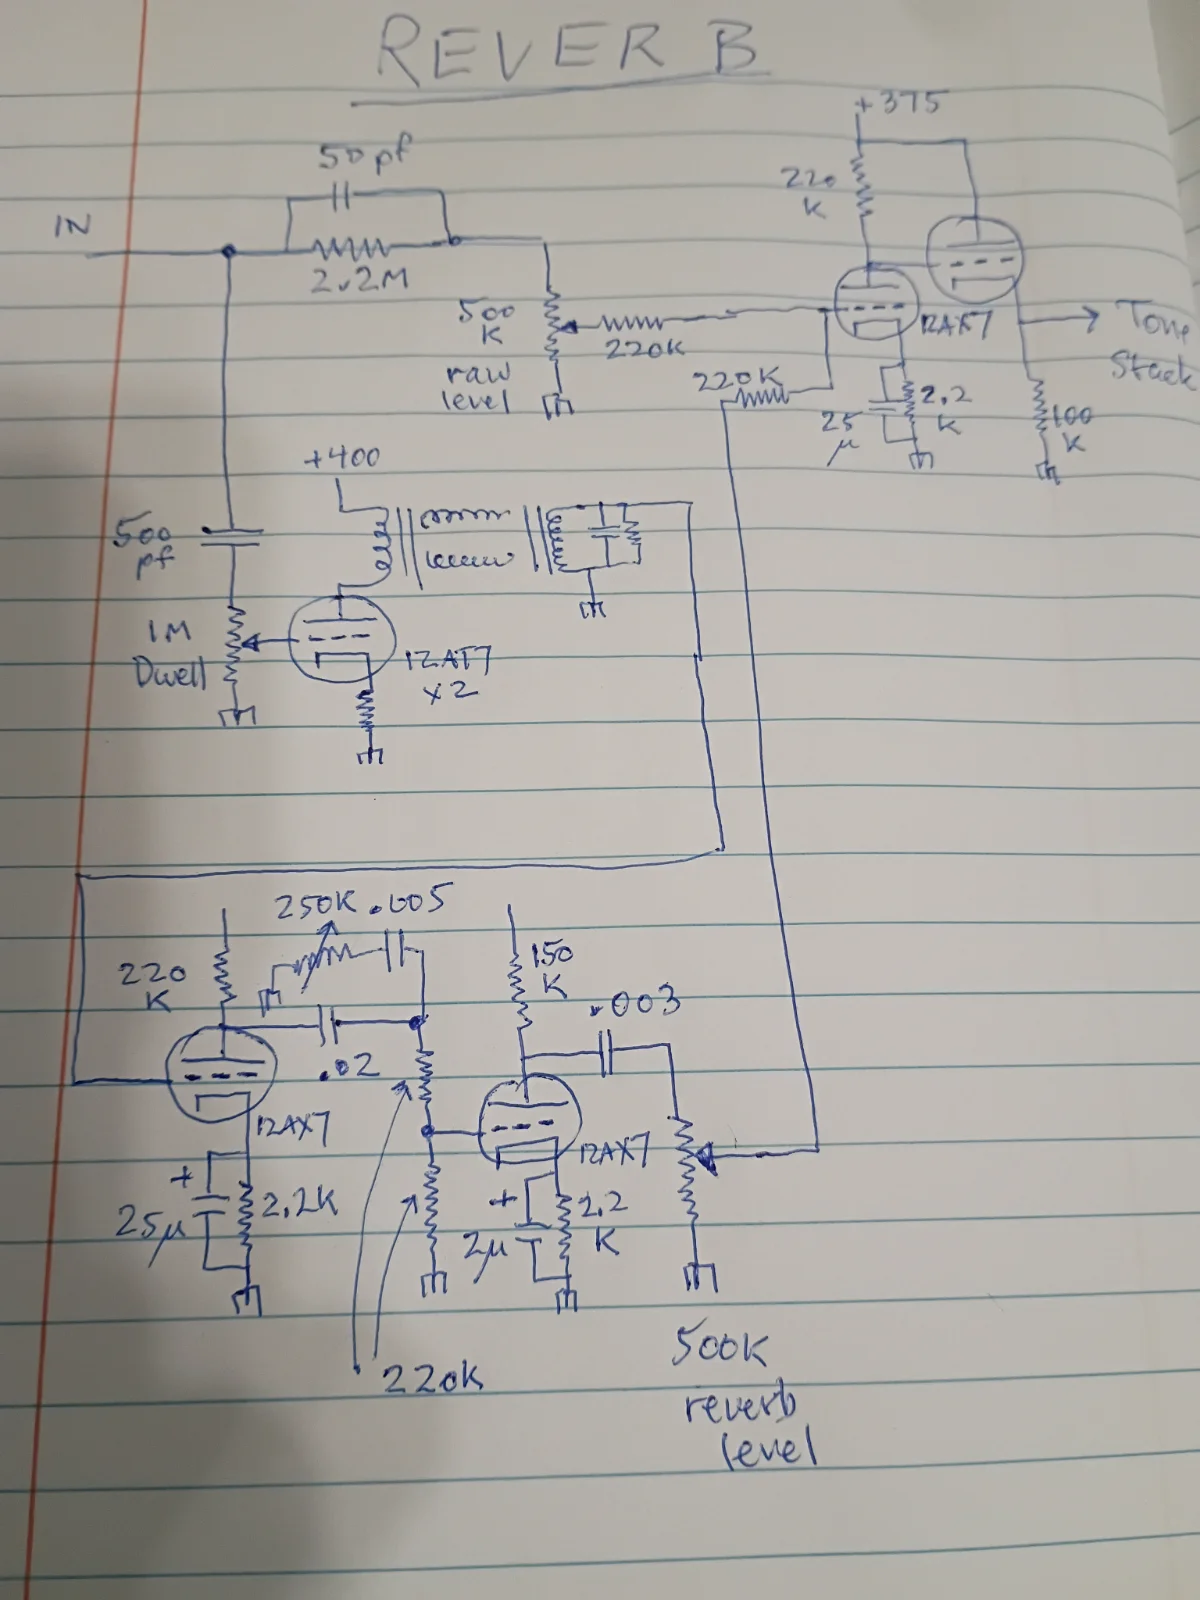 REVERB
+375
50pf
220
K
IN
2.2M
500
K
220K
12AX7
Tone
Stack
raw
level
220K
25
µ
2.2
K
100
K
+400
500
pf
1M
Dwell
12AT7
x2
250K .005
220
K
150
K
.003
.02
12AX7
12AX7
+
25µ
2.2K
+
2µ
2.2
K
220K
500K
reverb
level